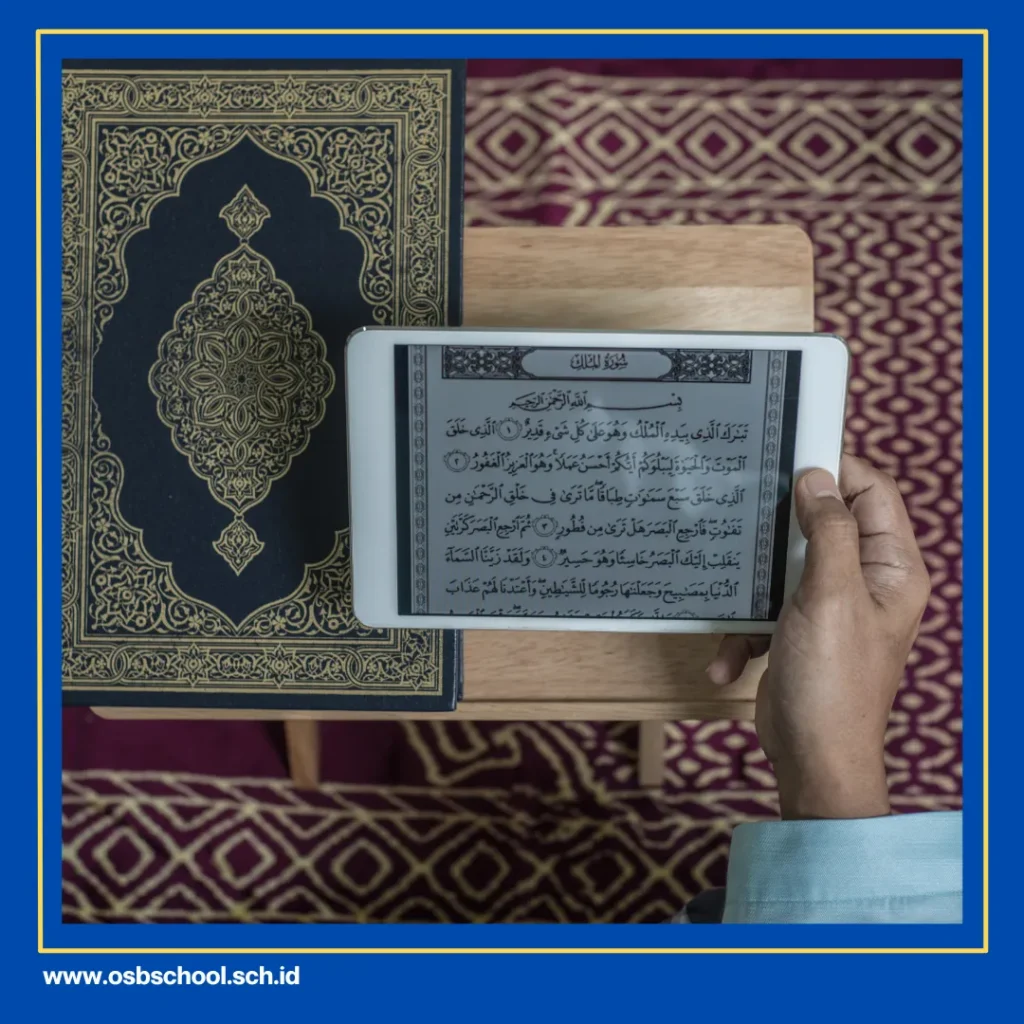 سُورَةُ المُلْكِ
بِسْمِ اللَّهِ الرَّحْمَٰنِ الرَّحِيمِ
تَبَٰرَكَ ٱلَّذِى بِيَدِهِ ٱلْمُلْكُ وَهُوَ عَلَىٰ كُلِّ شَىْءٍ قَدِيرٌ ١ ٱلَّذِى خَلَقَ
ٱلْمَوْتَ وَٱلْحَيَوٰةَ لِيَبْلُوَكُمْ أَيُّكُمْ أَحْسَنُ عَمَلًا ۚ وَهُوَ ٱلْعَزِيزُ ٱلْغَفُورُ ٢
ٱلَّذِى خَلَقَ سَبْعَ سَمَٰوَٰتٍ طِبَاقًا ۖ مَّا تَرَىٰ فِى خَلْقِ ٱلرَّحْمَٰنِ مِن
تَفَٰوُتٍ ۖ فَٱرْجِعِ ٱلْبَصَرَ هَلْ تَرَىٰ مِن فُطُورٍ ٣ ثُمَّ ٱرْجِعِ ٱلْبَصَرَ كَرَّتَيْنِ
يَنقَلِبْ إِلَيْكَ ٱلْبَصَرُ خَاسِئًا وَهُوَ حَسِيرٌ ٤ وَلَقَدْ زَيَّنَّا ٱلسَّمَآءَ
ٱلدُّنْيَا بِمَصَٰبِيحَ وَجَعَلْنَٰهَا رُجُومًا لِّلشَّيَٰطِينِ ۖ وَأَعْتَدْنَا لَهُمْ عَذَابَ
www.osbschool.sch.id